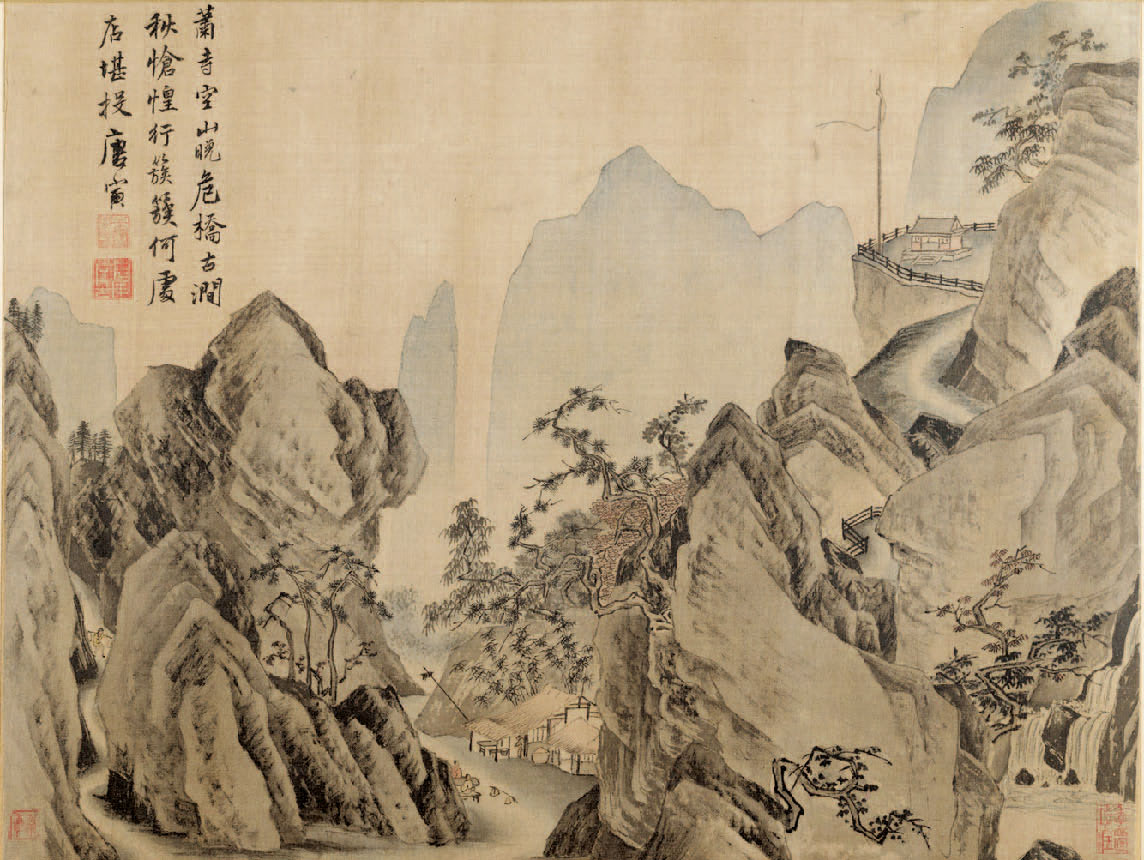 蕭寺空山晩危橋古澗
秋愴惶行簇簇何處
店堪投唐寅